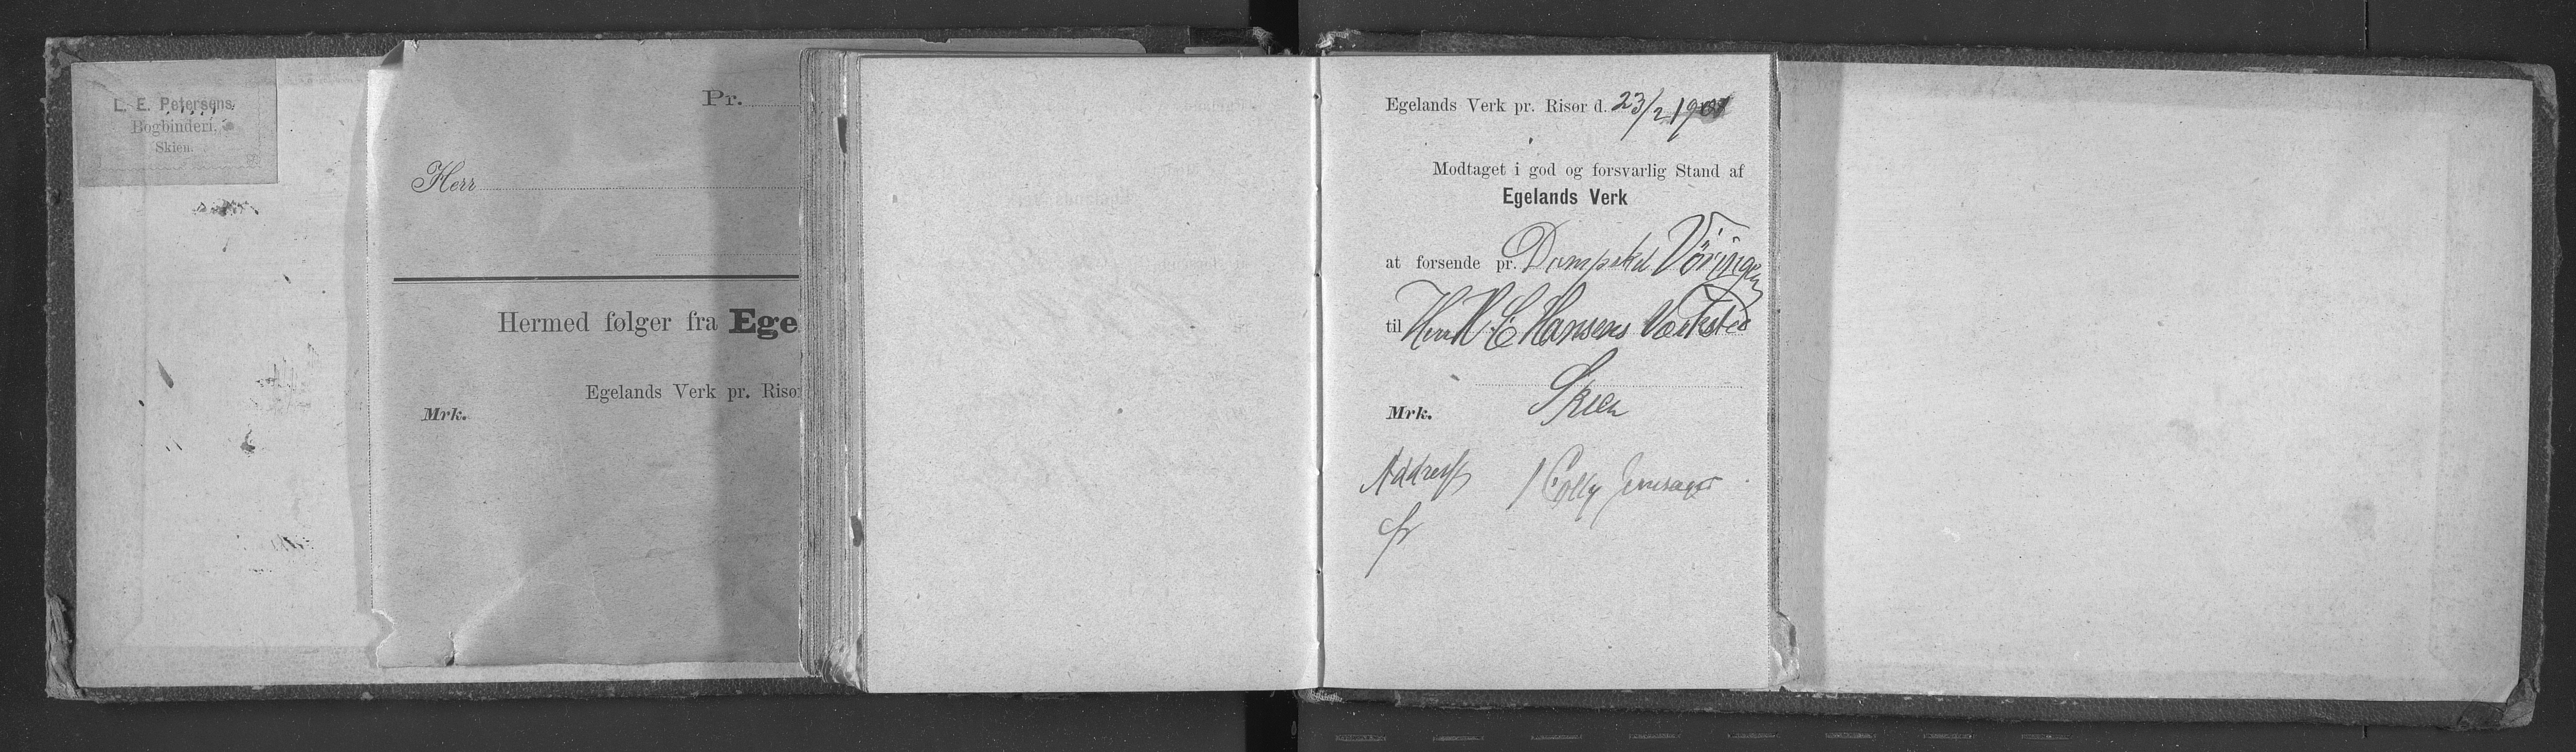 L. E. Petersens
Bogbinderi,
Skien.
Pr.
Herr
Hermed følger fra Ege
Egelands Verk pr. Riso
Mrk.
Egelands Verk pr. Risør d. 23/2 1901
Modtaget i god og forsvarlig Stand af
Egelands Verk
at forsende pr. Dampskd Vöringen
til Herr H. C. Hansens Værksted
Skien
Mrk.
Address 1 Colly
fr